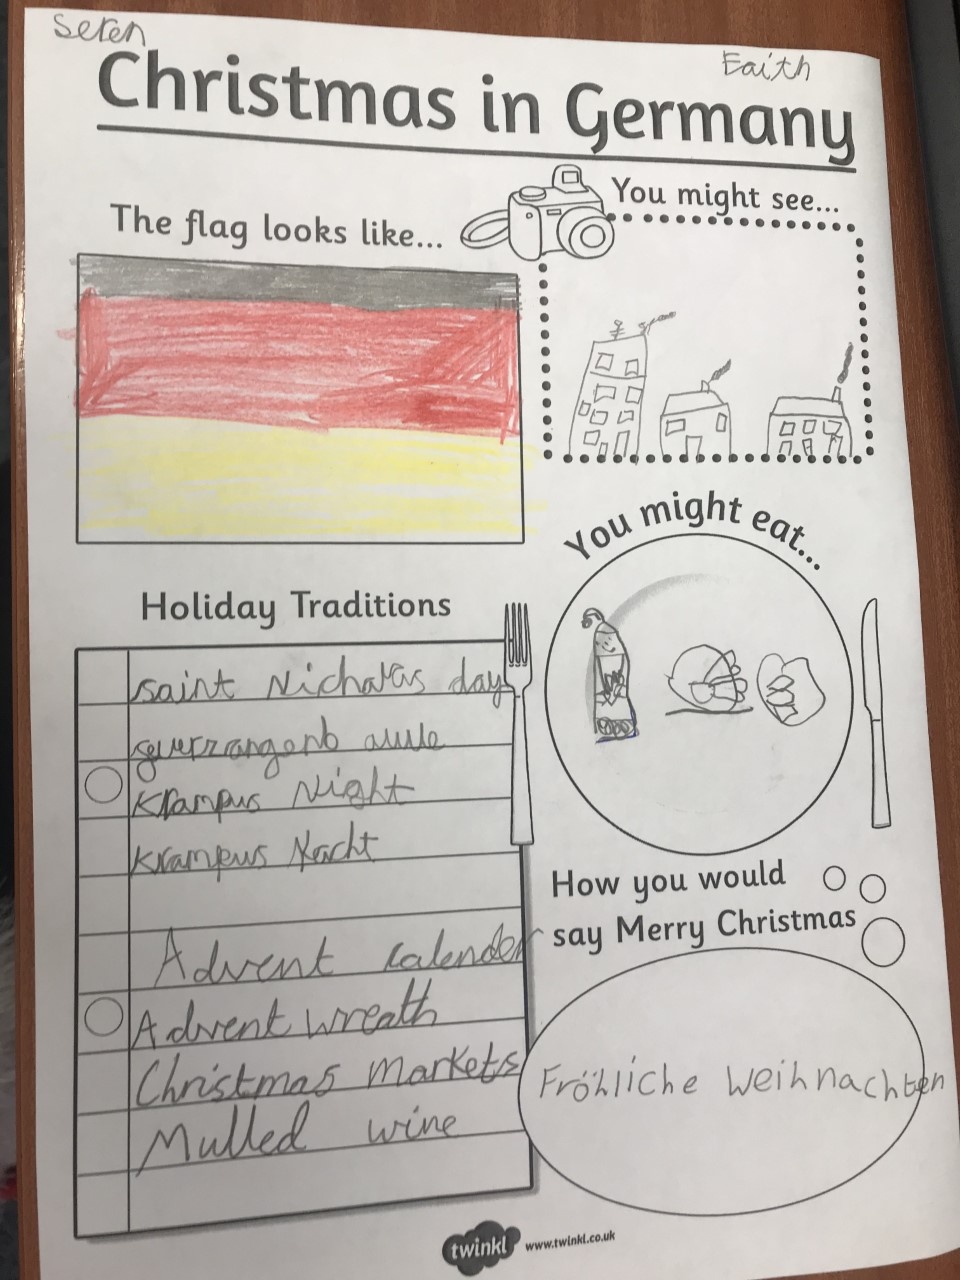 Seren
Faith
Christmas in Germany
The flag looks like...
You might see...
You might eat...
Holiday Traditions
saint Nicholas day
Krampus Night
Krampus Nacht
Advent calender
Advent wreath
Christmas markets
Mulled wine
How you would
say Merry Christmas
Fröhliche Weihnachten
twinkl www.twinkl.co.uk